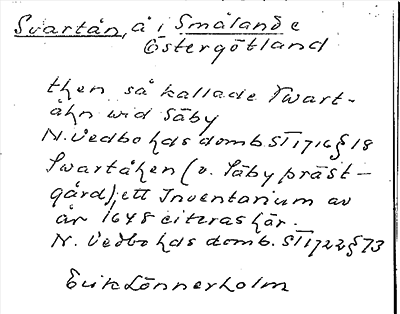 Svartån, å i Småland o
Östergötland
then så kallade Swart-
åhn wid Säby
N. Vedbo hds domb. ST 1716 § 18
Swartåhen (v. Säby präst-
gård), ett Inventarium av
år 1648 citeras här.
N. Vedbo hds domb. ST 1722 § 73
Erik Lönnerholm